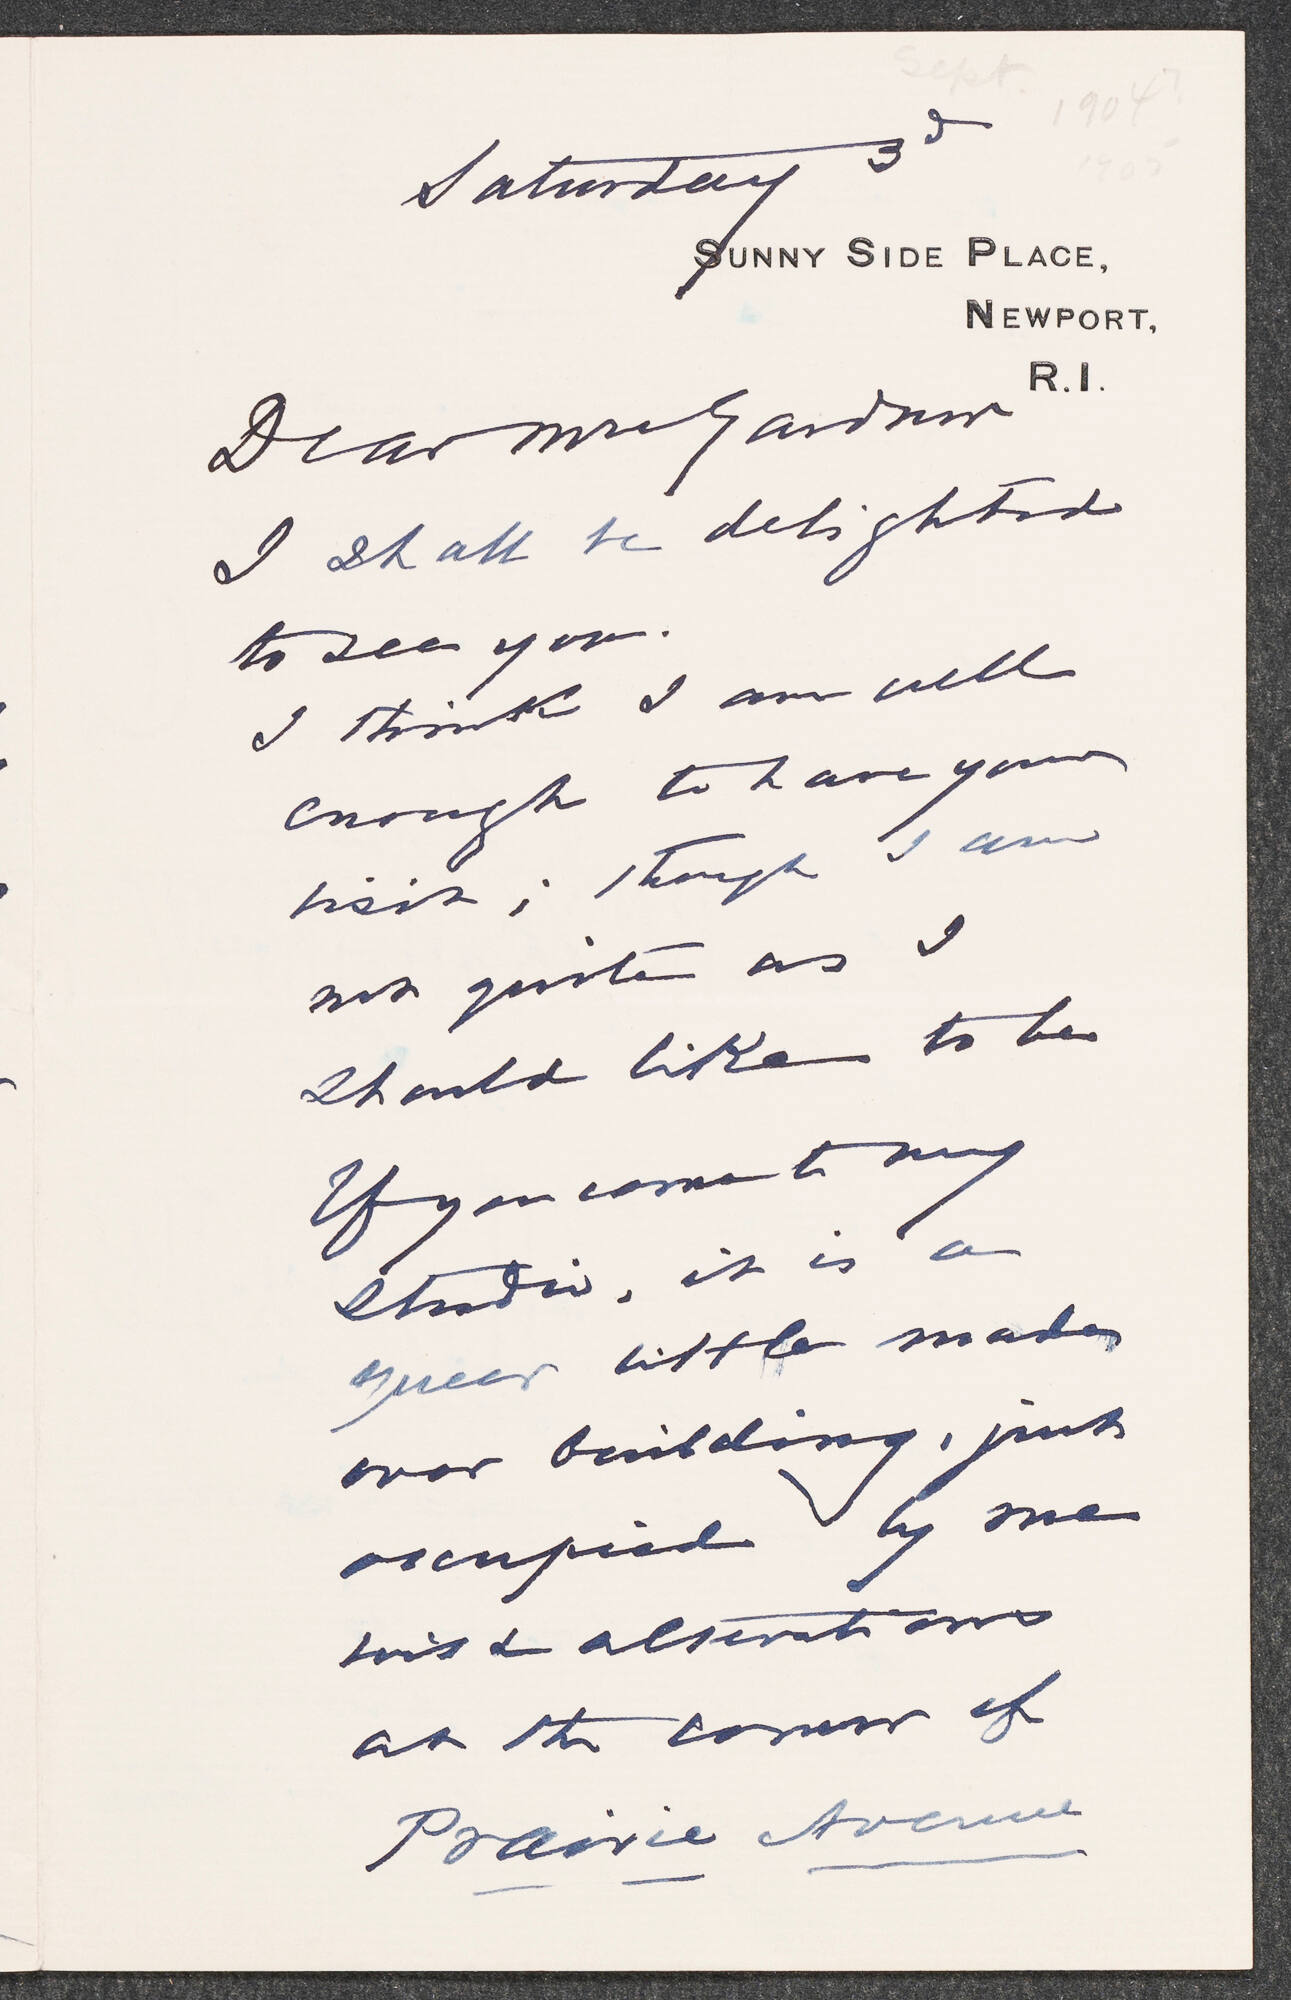 Sept.
1904?
1905
Saturday 3d
SUNNY SIDE PLACE,
NEWPORT,
R.I.
Dear Mrs Gardner
I shall be delighted
to see you.
I think I am well
enough to have your
visit; though I am
not quite as I
should like to be
If you come to my
studio, it is a
queer little made
over building, just
occupied by me
with alterations
at the corner of
Prairie Avenue